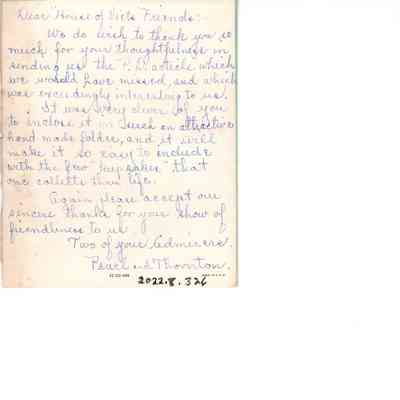 Dear "House of Diets" Friends:-
We do wish to thank you so
much for your thoughtfulness in
sending us the P.D. article which
we would have missed, and which
was exceedingly interesting to us.
It was very clever of you
to inclose it in such an attractive
hand made folder, and it will
make it so easy to include
with the few "keepsakes" that
one collects thru life.
Again please accept our
sincere thanks for your show of
friendliness to us.
Two of your admirers.
Pearl and Thornton.
2022.8.326